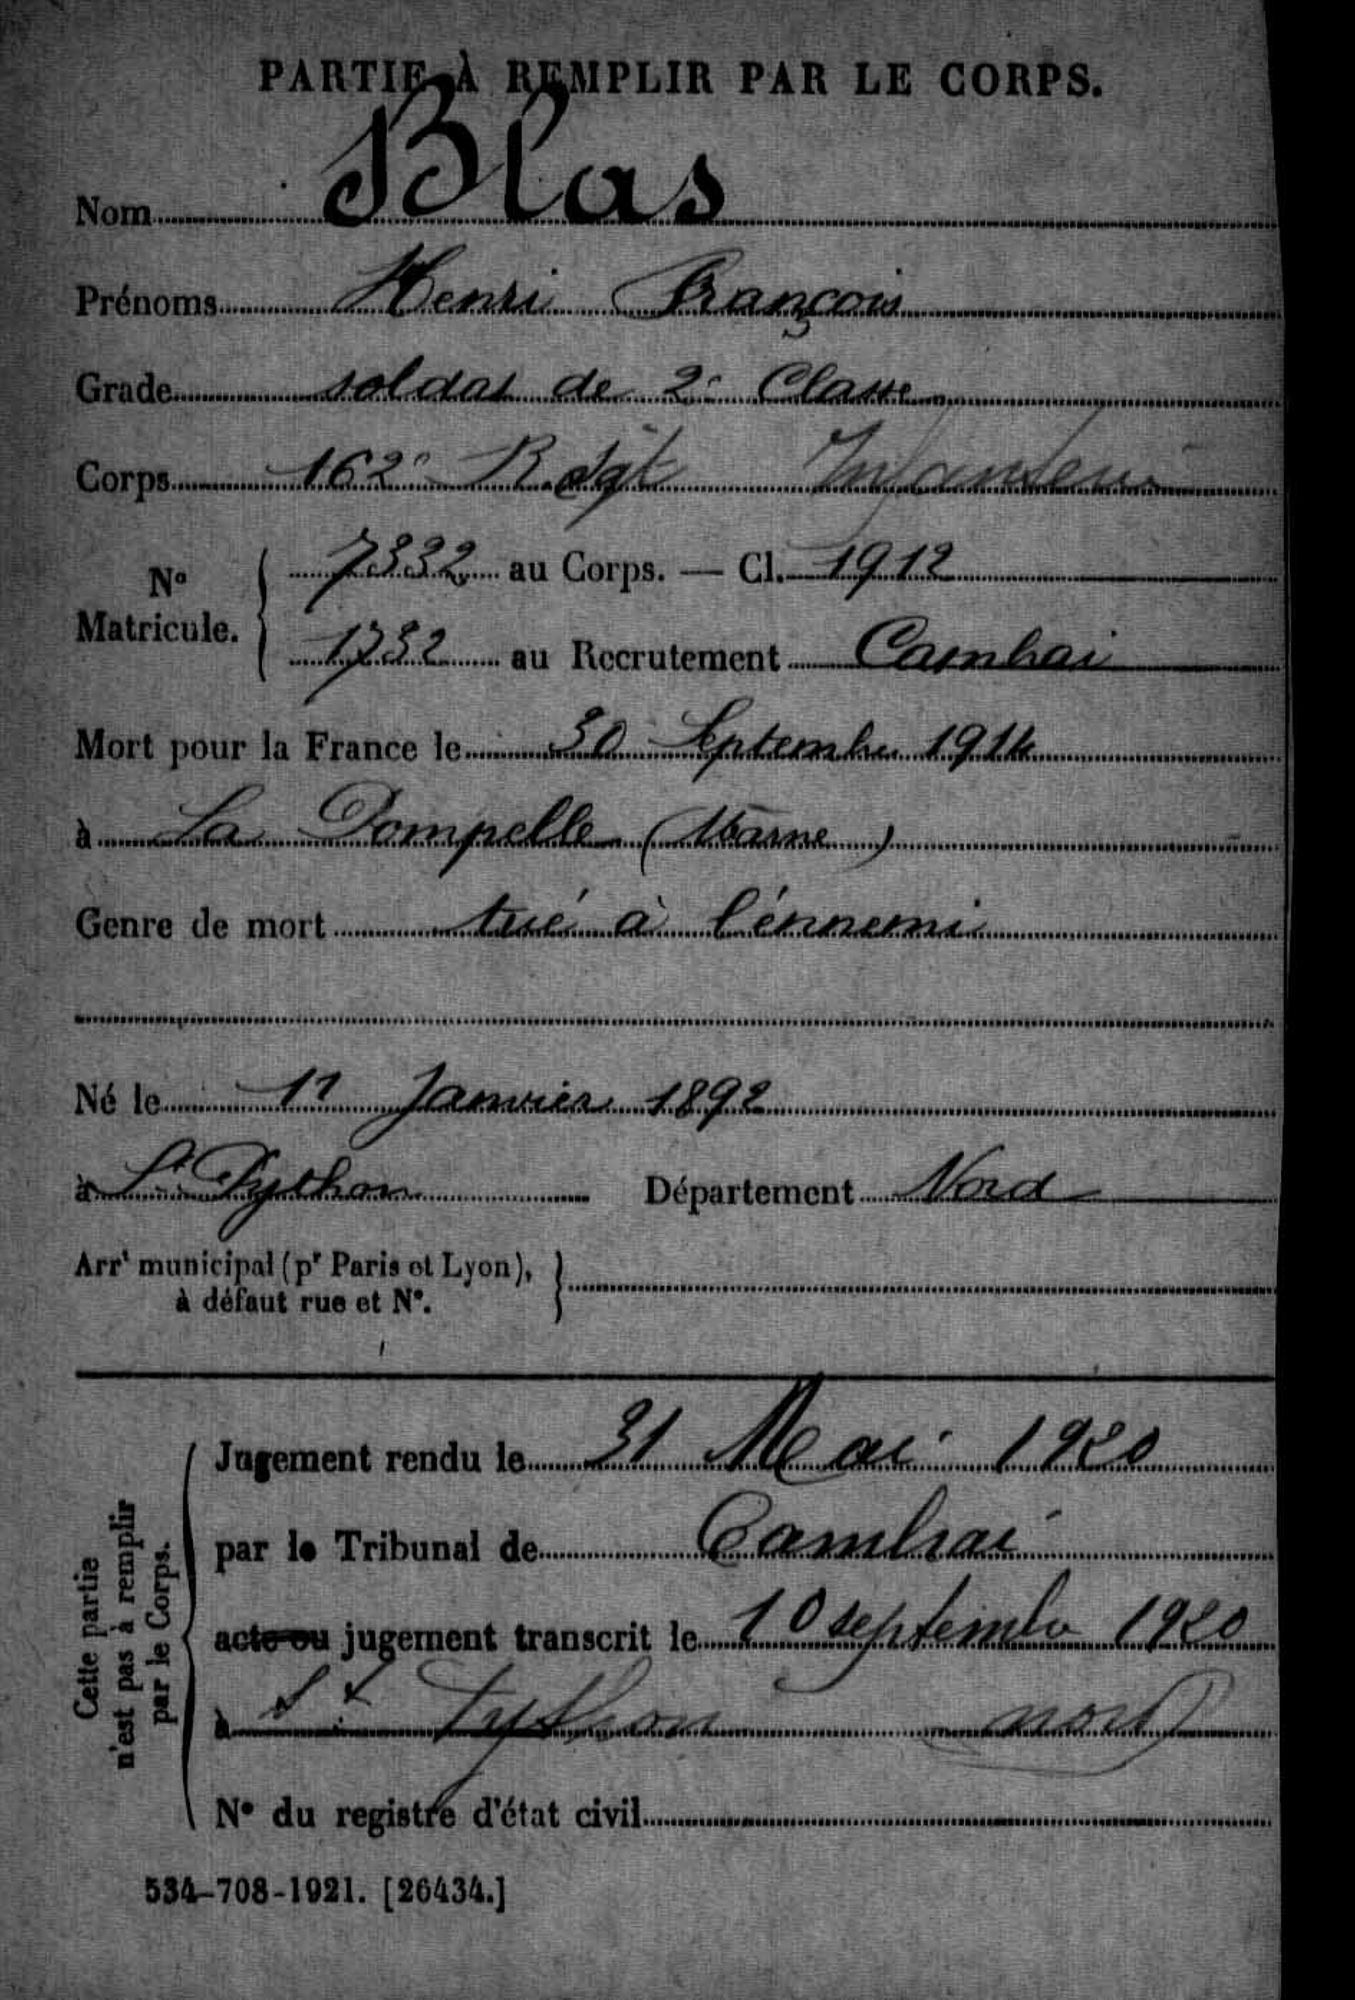 PARTIE À REMPLIR PAR LE CORPS.
Nom Blas
Prénoms Henri François
Grade soldat de 2e Classe
Corps 162e Régt Infanterie
No Matricule. 7332 au Corps. — Cl. 1912
1732 au Recrutement Cambrai
Mort pour la France le 30 Septembre 1914
à La Pompelle (Marne)
Genre de mort tué à l'énnemi
Né le 11 Janvier 1892
à St Python Département Nord
Arrt municipal (pr Paris et Lyon),
à défaut rue et No.
Cette partie
n'est pas à remplir
par le Corps.
Jugement rendu le 31 Mai 1920
par le Tribunal de Cambrai
acte ou jugement transcrit le 10 septembre 1920
à St Python nord
No du registre d'état civil
534-708-1921. [26434.]